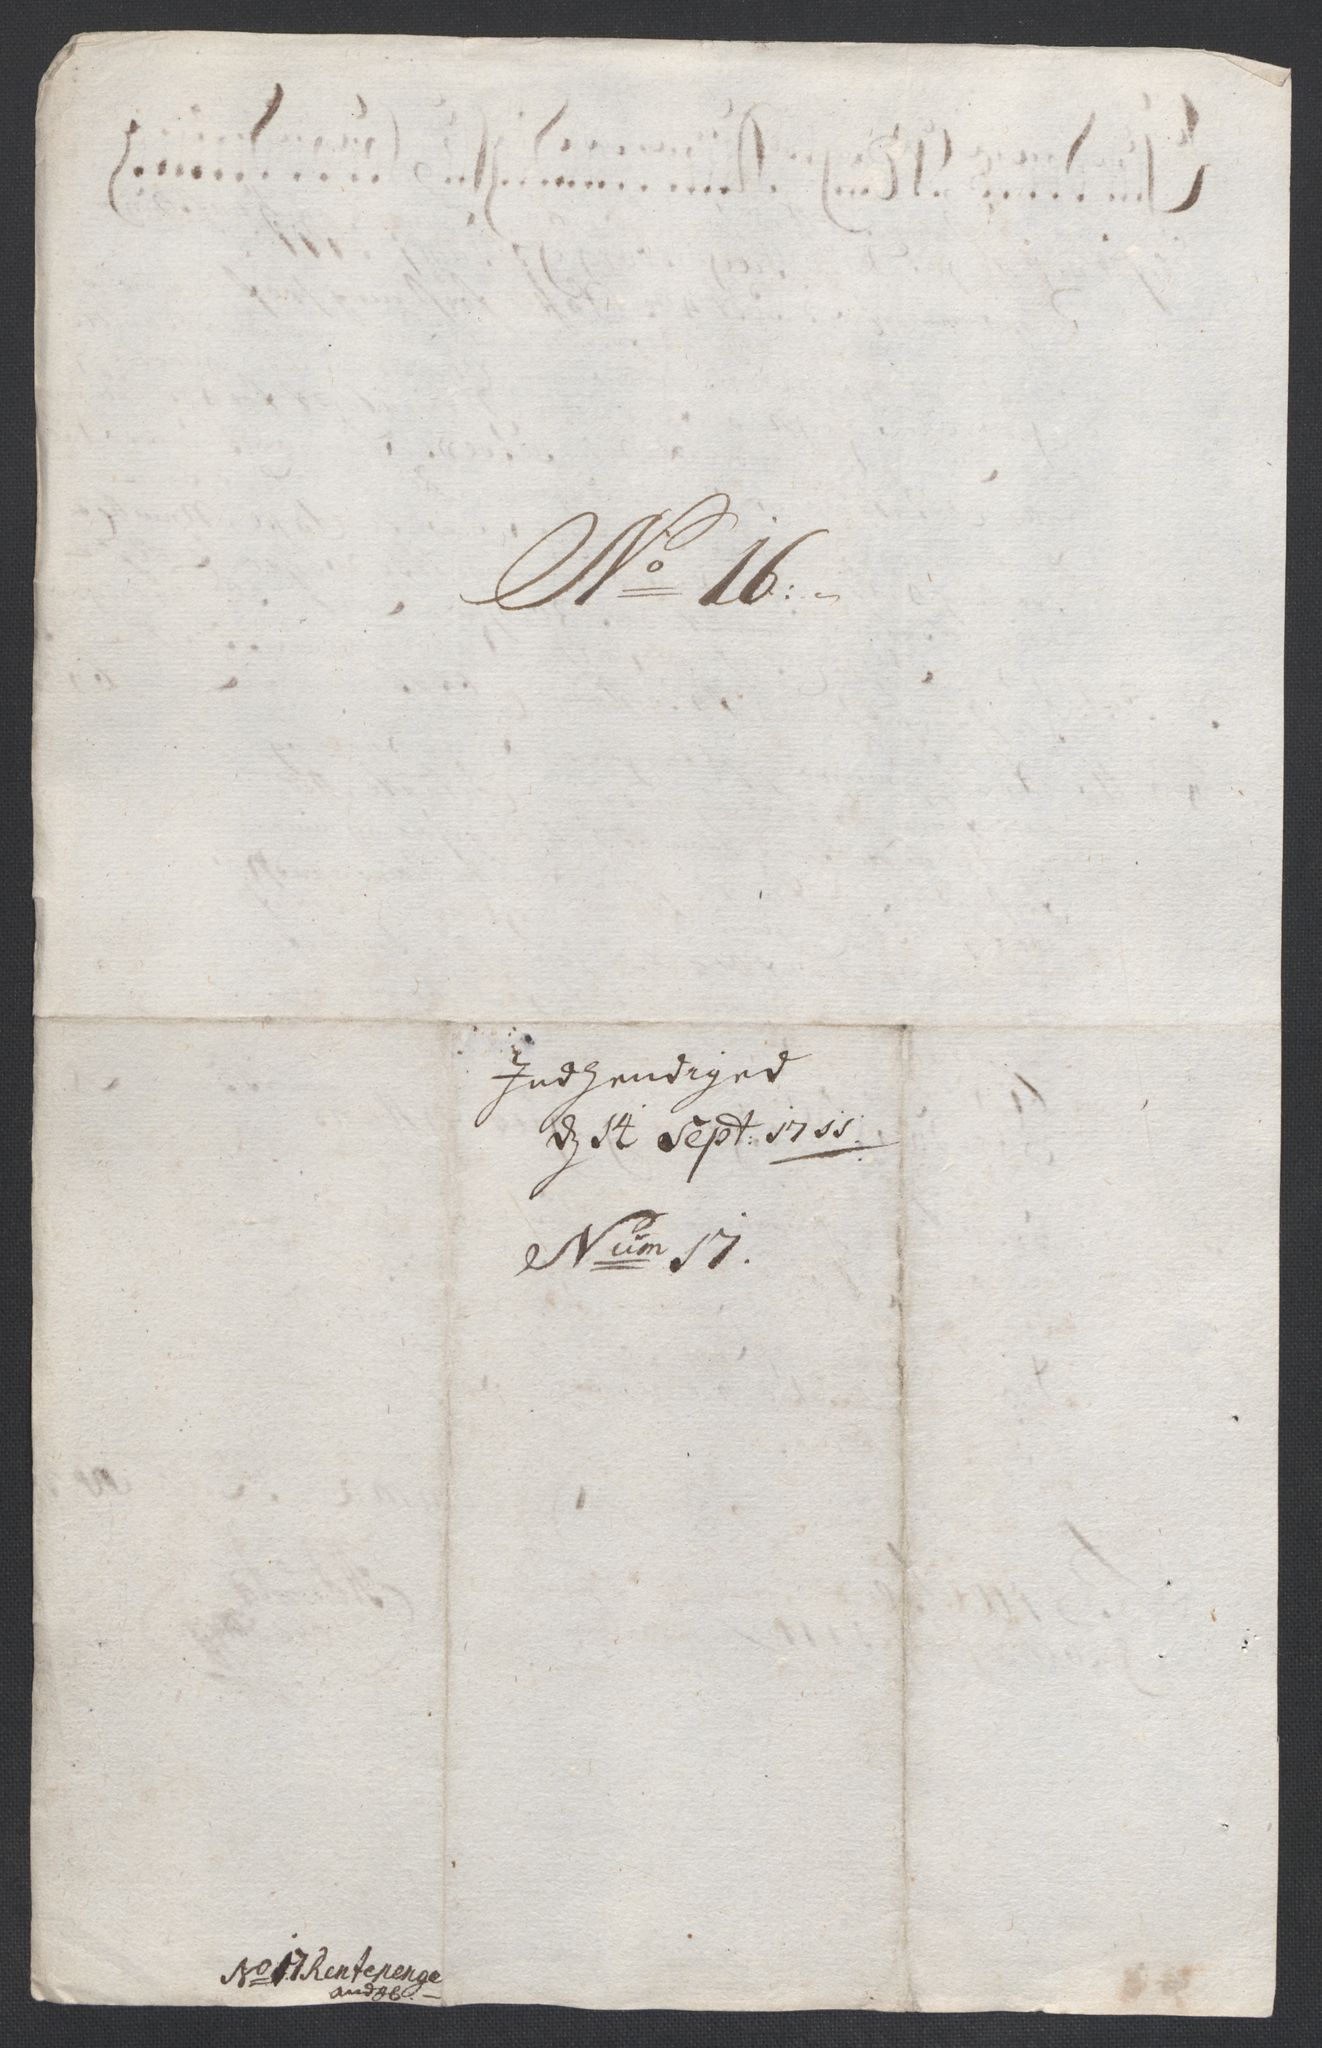 No 16.
Indhendiged
d 14 Sept: 1711.
Num 17.
No 17 Rentepenge